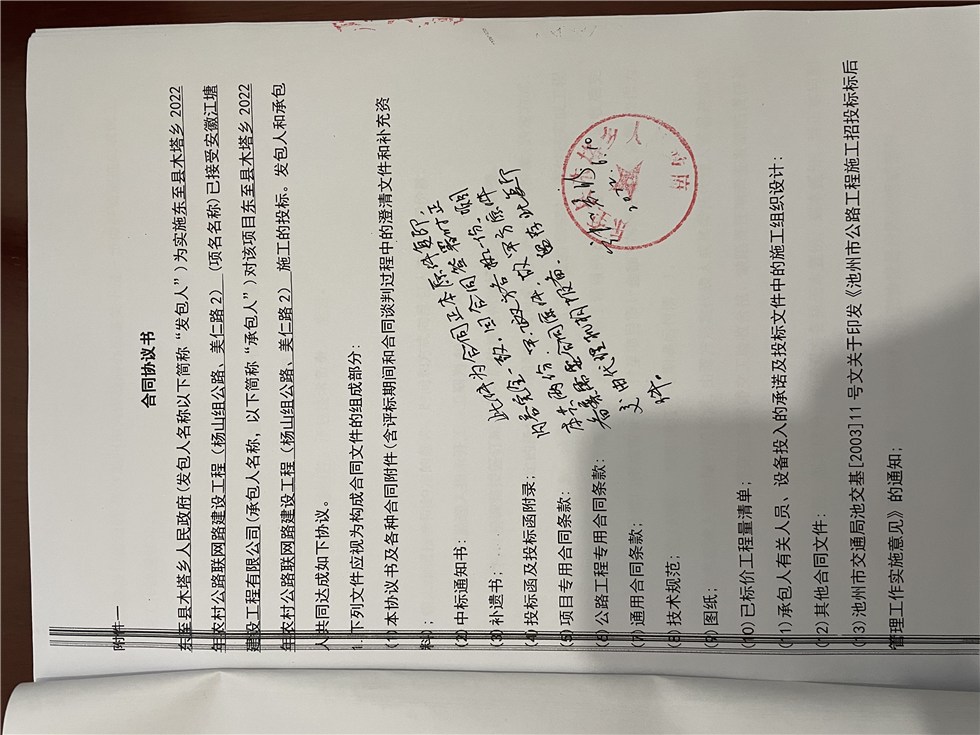 附件一
合同协议书
东至县木塔乡人民政府(发包人名称以下简称“发包人”)为实施东至县木塔乡 2022
年农村公路联网路建设工程(杨山组公路、美仁路 2) (项名名称)已接受安徽江塘
建设工程有限公司(承包人名称, 以下简称“承包人”)对该项目东至县木塔乡 2022
年农村公路联网路建设工程(杨山组公路、美仁路 2) 施工的投标。发包人和承包
人共同达成如下协议。
1. 下列文件应视为构成合同文件的组成部分:
(1)本协议书及各种合同附件(含评标期间和合同谈判过程中的澄清文件和补充资
料);
(2)中标通知书:
(3)补遗书;
(4)投标函及投标函附录;
(5)项目专用合同条款:
(6)公路工程专用合同条款:
(7)通用合同条款;
(8)技术规范;
(9)图纸;
(10)已标价工程量清单;
(11)承包人有关人员、设备投入的承诺及投标文件中的施工组织设计:
(12)其他合同文件:
(13)池州市交通局池交基[2003]11 号文关于印发《池州市公路工程施工招投标标后
管理工作实施意见》的通知;
此件为合同正本原件复印
内容完全一致